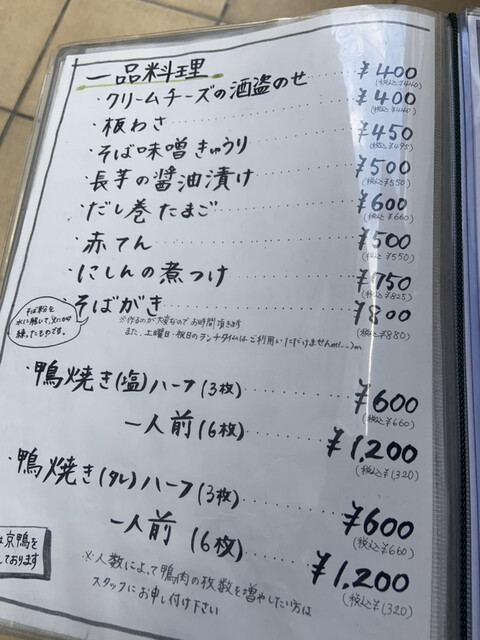 一品料理
・クリームチーズの酒盗のせ ¥400
(税込¥440)
・板わさ ¥400
(税込¥440)
・そば味噌きゅうり ¥450
(税込¥495)
・長芋の醤油漬け ¥500
(税込¥550)
・だし巻たまご ¥600
(税込¥660)
・赤てん ¥500
(税込¥550)
・にしんの煮つけ ¥750
(税込¥825)
・そばがき ¥800
(税込¥880)
そば粉を
水に溶して、
練ったものです。
※作るのが大変なので お時間頂きます
また、土曜日・祝日のランチタイムはご利用いただけませんm(._.)m
・鴨焼き(塩)ハーフ(3枚) ¥600
(税込¥660)
一人前(6枚) ¥1,200
(税込¥1,320)
・鴨焼き(タレ)ハーフ(3枚) ¥600
(税込¥660)
一人前(6枚) ¥1,200
(税込¥1,320)
は京鴨を
しております
※人数によって鴨肉の枚数を増やしたい方は
スタッフにお申し付け下さい